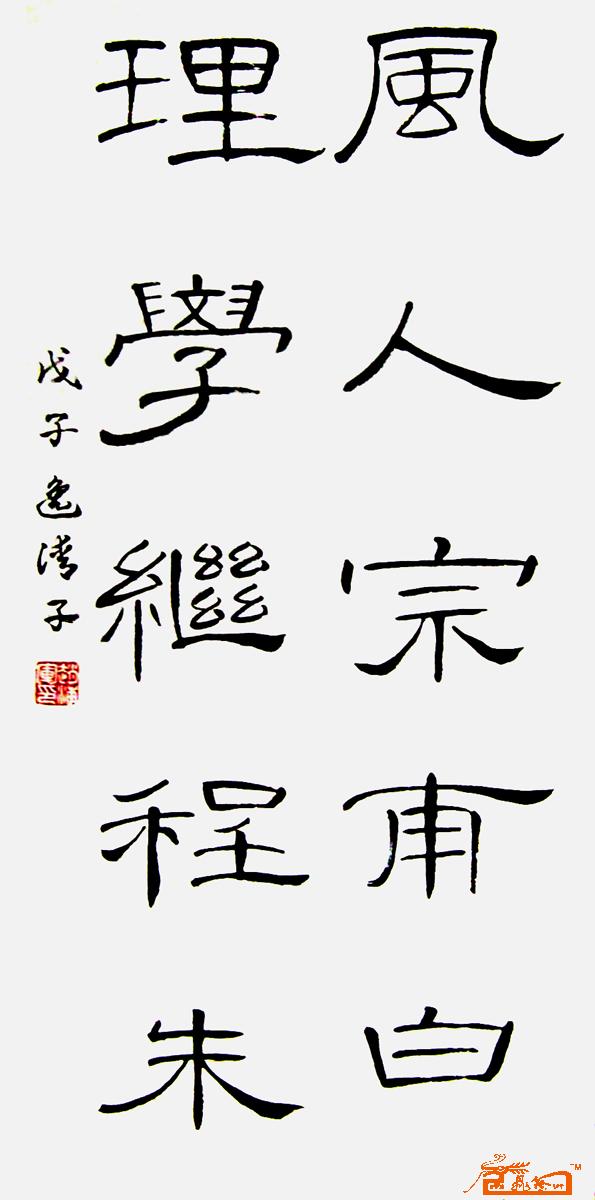 風人宗甫白
理學繼程朱
戊子逸清子